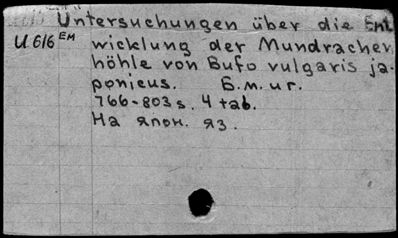 Untersuchungen über die Ent
U 616 ЕМ wicklung der Mundrachen
höhle von Bufo vulgaris ja-
ponicus. Б.м. и г.
766-803 s. 4 tab.
На япон. яз.